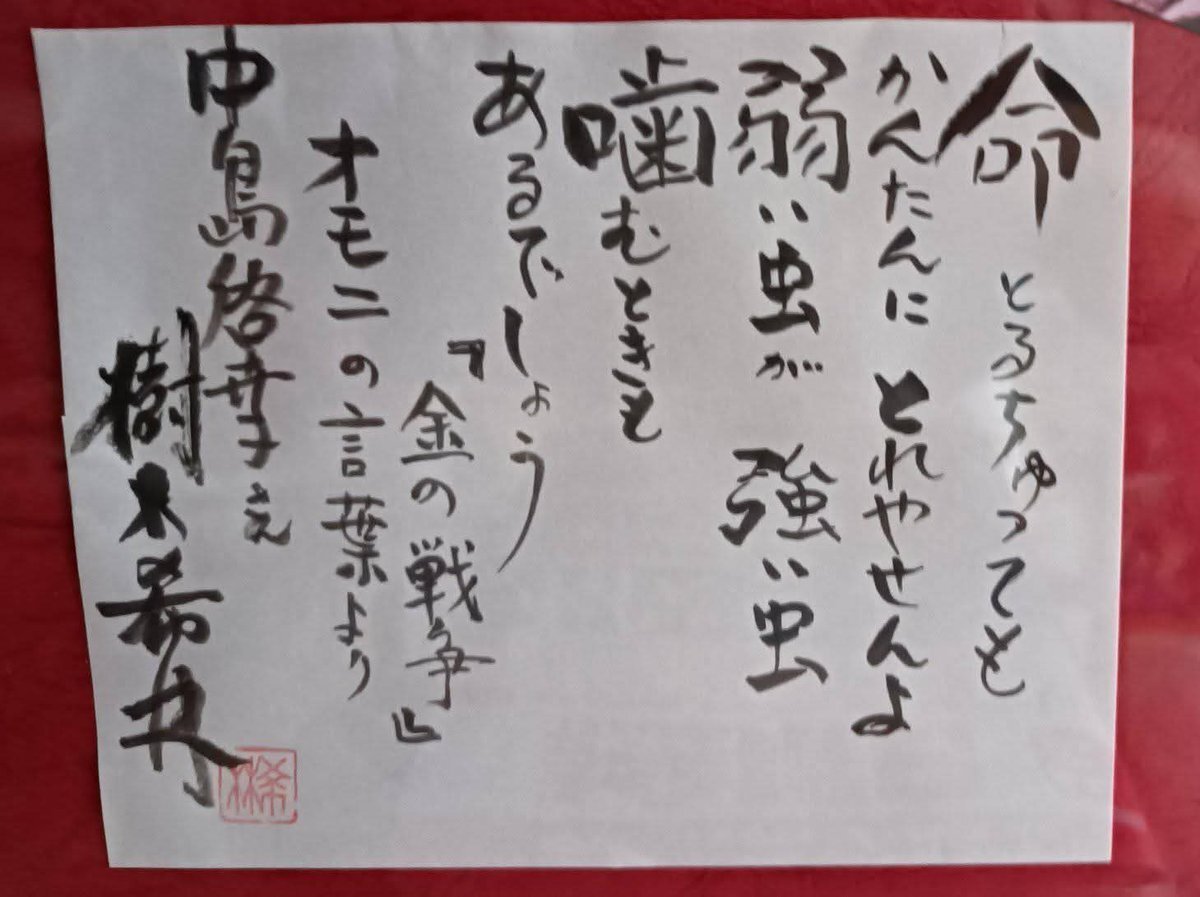 命とるちゅっても
かんたんにとれやせんよ
弱い虫が強い虫
噛むときも
あるでしょう
『金の戦争』
オモニの言葉より
中島啓幸さえ
樹木希林